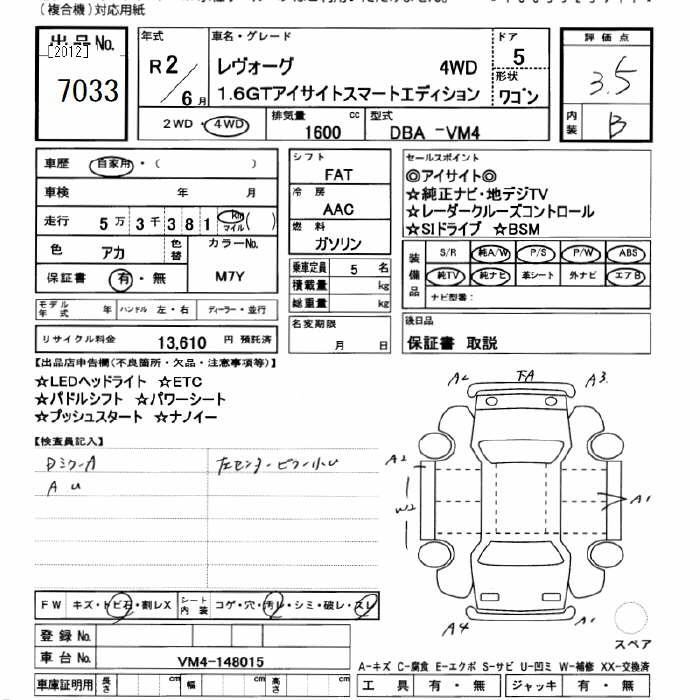 (複合機)対応用紙
出品No.
[2012]
7033
年式
R2/6月
車名・グレード
レヴォーグ 4WD
1.6GTアイサイトスマートエディション
ドア
5
形状
ワゴン
2WD・4WD
排気量
1600 cc
型式
DBA -VM4
評価点
3.5
内装
B
車歴 自家用・( )
車検 年 月
走行 5万3千381 Km マイル ( )
色 アカ
色替
カラーNo.
M7Y
保証書 有・無
モデル年式 年 ハンドル 左・右 ディーラー・並行
リサイクル料金 13,610 円 預託済
シフト
FAT
冷房
AAC
燃料
ガソリン
乗車定員 5 名
積載量 kg
総重量 kg
名変期限
月 日
セールスポイント
◎アイサイト◎
☆純正ナビ・地デジTV
☆レーダークルーズコントロール
☆SIドライブ ☆BSM
装備品
S/R 純A/W P/S P/W ABS
純TV 純ナビ 革シート 外ナビ エアB
ナビ型番:
後日品
保証書 取説
【出品店申告欄(不良箇所・欠品・注意事項等)】
☆LEDヘッドライト ☆ETC
☆パドルシフト ☆パワーシート
☆プッシュスタート ☆ナノイー
【検査員記入】
Dミラー A
A U
左センターピラー小U
A2 FA A3
A2
W2
A1
A4 A1
スペア
FW キズ・トビ石・割レX
シート内装 コゲ・穴・汚レ・シミ・破レ・スレ
登録No.
車台No. VM4-148015
車庫証明用 長さ cm 幅 cm 高さ cm
A-キズ C-腐食 E-エクボ S-サビ U-凹ミ W-補修 XX-交換済
工具 有・無 ジャッキ 有・無